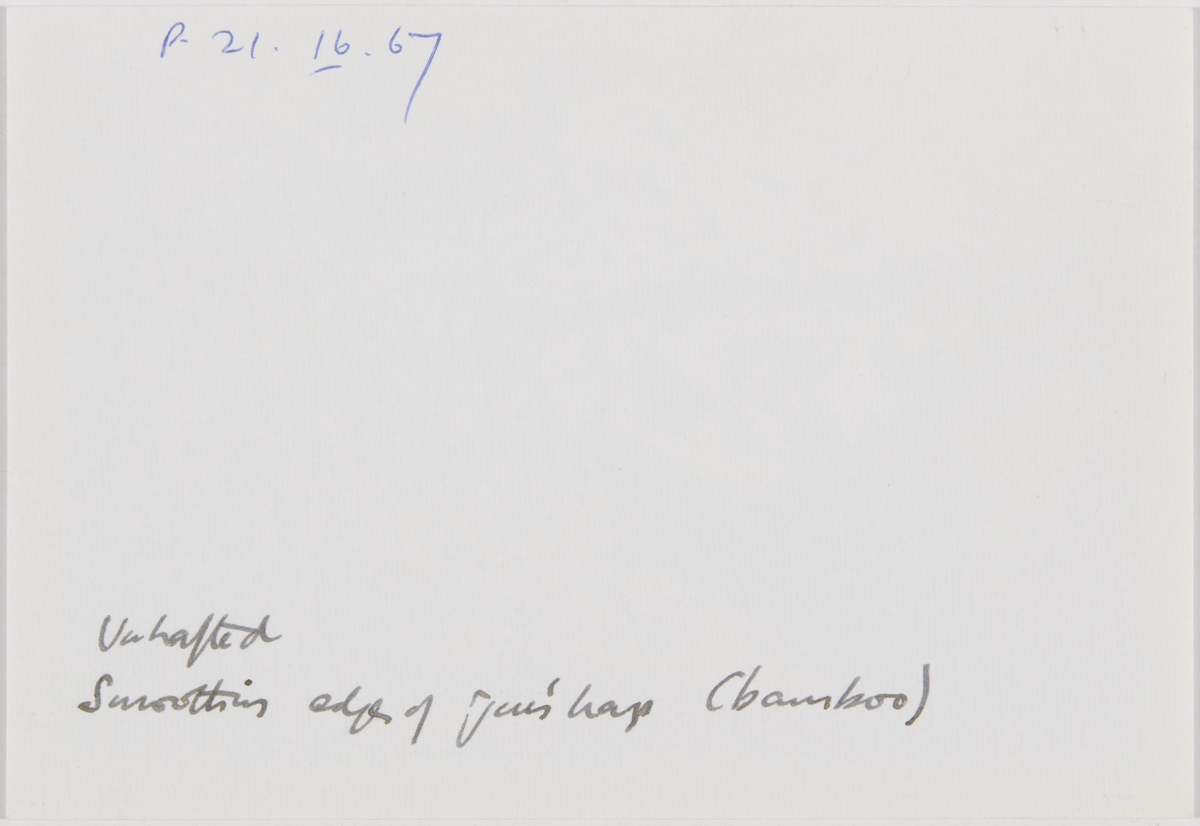 P. 21. 16. 67
Unhafted
Smoothing edges of jews harp (bamboo)